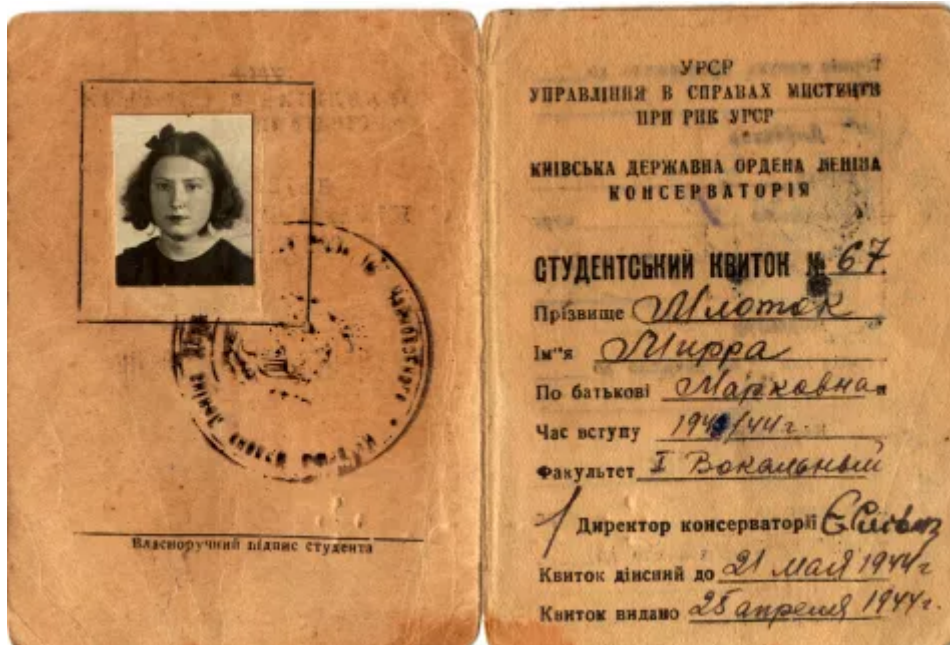 Власноручний підпис студента
УРСР
УПРАВЛІННЯ В СПРАВАХ МИСТЕЦТВ
ПРИ РНК УРСР
КИЇВСЬКА ДЕРЖАВНА ОРДЕНА ЛЕНІНА
КОНСЕРВАТОРІЯ
СТУДЕНТСЬКИЙ КВИТОК № 67
Прізвище Млоток
Ім"я Мирра
По батькові Марковна
Час вступу 1943/44 г.
Факультет I Вокальный
Директор консерваторії
Квиток дійсний до 21 мая 1944 г
Квиток видано 25 апреля 1944 г.